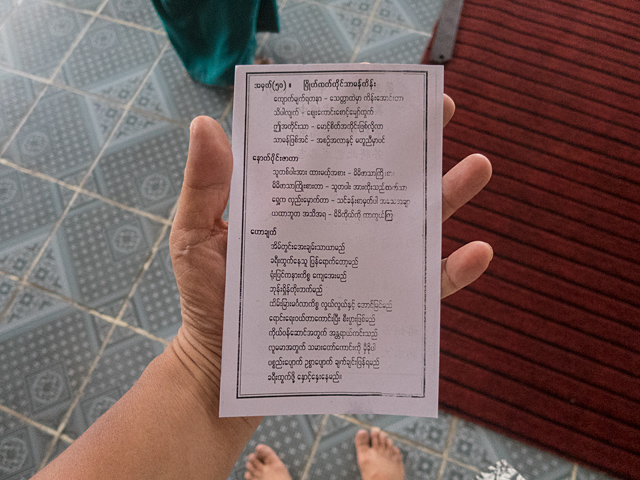 အမှတ်(၅၀) ။ ဗြိုတ်ထတ်တိုင်သာမန်တိန်း
ကျောက်မျက်ရတနာ - သေတ္တာထဲမှာ
သိပါလျက် - ဈေးကောင်းစောင့်မျှော်လျက်
ဤအတိုင်းသာ - မောင့်စိတ်အတိုင်းဖြစ်လို့လာ
သာမန်ဖြစ်အင် - အစဉ်အလာနှင့် မတူညီမှာပင်
နောက်ပိုင်းဇာတာ
သူတစ်ပါးအား ထားမယ့်အစား - မိမိဇာသာကြိုးစား
မိမိဇာသာကြိုးစားတာ - သူတပါး အားကိုးသည်ထက်သာ
ရွှေက လှည်းမှောက်တာ - သင်ခန်းစာမှတ်ပါ
ယထာဘူတ အသိအရ - မိမိကိုယ်ကို ကာကွယ်ကြ
ဟောချက်
အိမ်တွင်းအေးချမ်းသာယာမည်
ခရီးထွက်နေသူ ပြန်ရောက်တော့မည်
ရုံးပြင်ကနားကိစ္စ ကျေအေးမည်
ဘုန်းရှိန်တိုးတက်မည်
ထိမ်းမြားမင်္ဂလာကိစ္စ လွယ်လွယ်နှင့် အောင်မြင်မည်
ရောင်းရေးဝယ်တာကောင်းပြီး စီးပွားဖြစ်မည်
ကိုယ်ဝန်ဆောင်အတွက် အန္တရာယ်ကင်းသည်
လူမမာအတွက် သမားတော်ကောင်းကို မှီခိုပါ
ပစ္စည်းပျောက် ဥစ္စာပျောက် ချက်ချင်းပြန်ရမည်
ခရီးထွက်ဖို့ နှောင့်နှေးနေမည်။